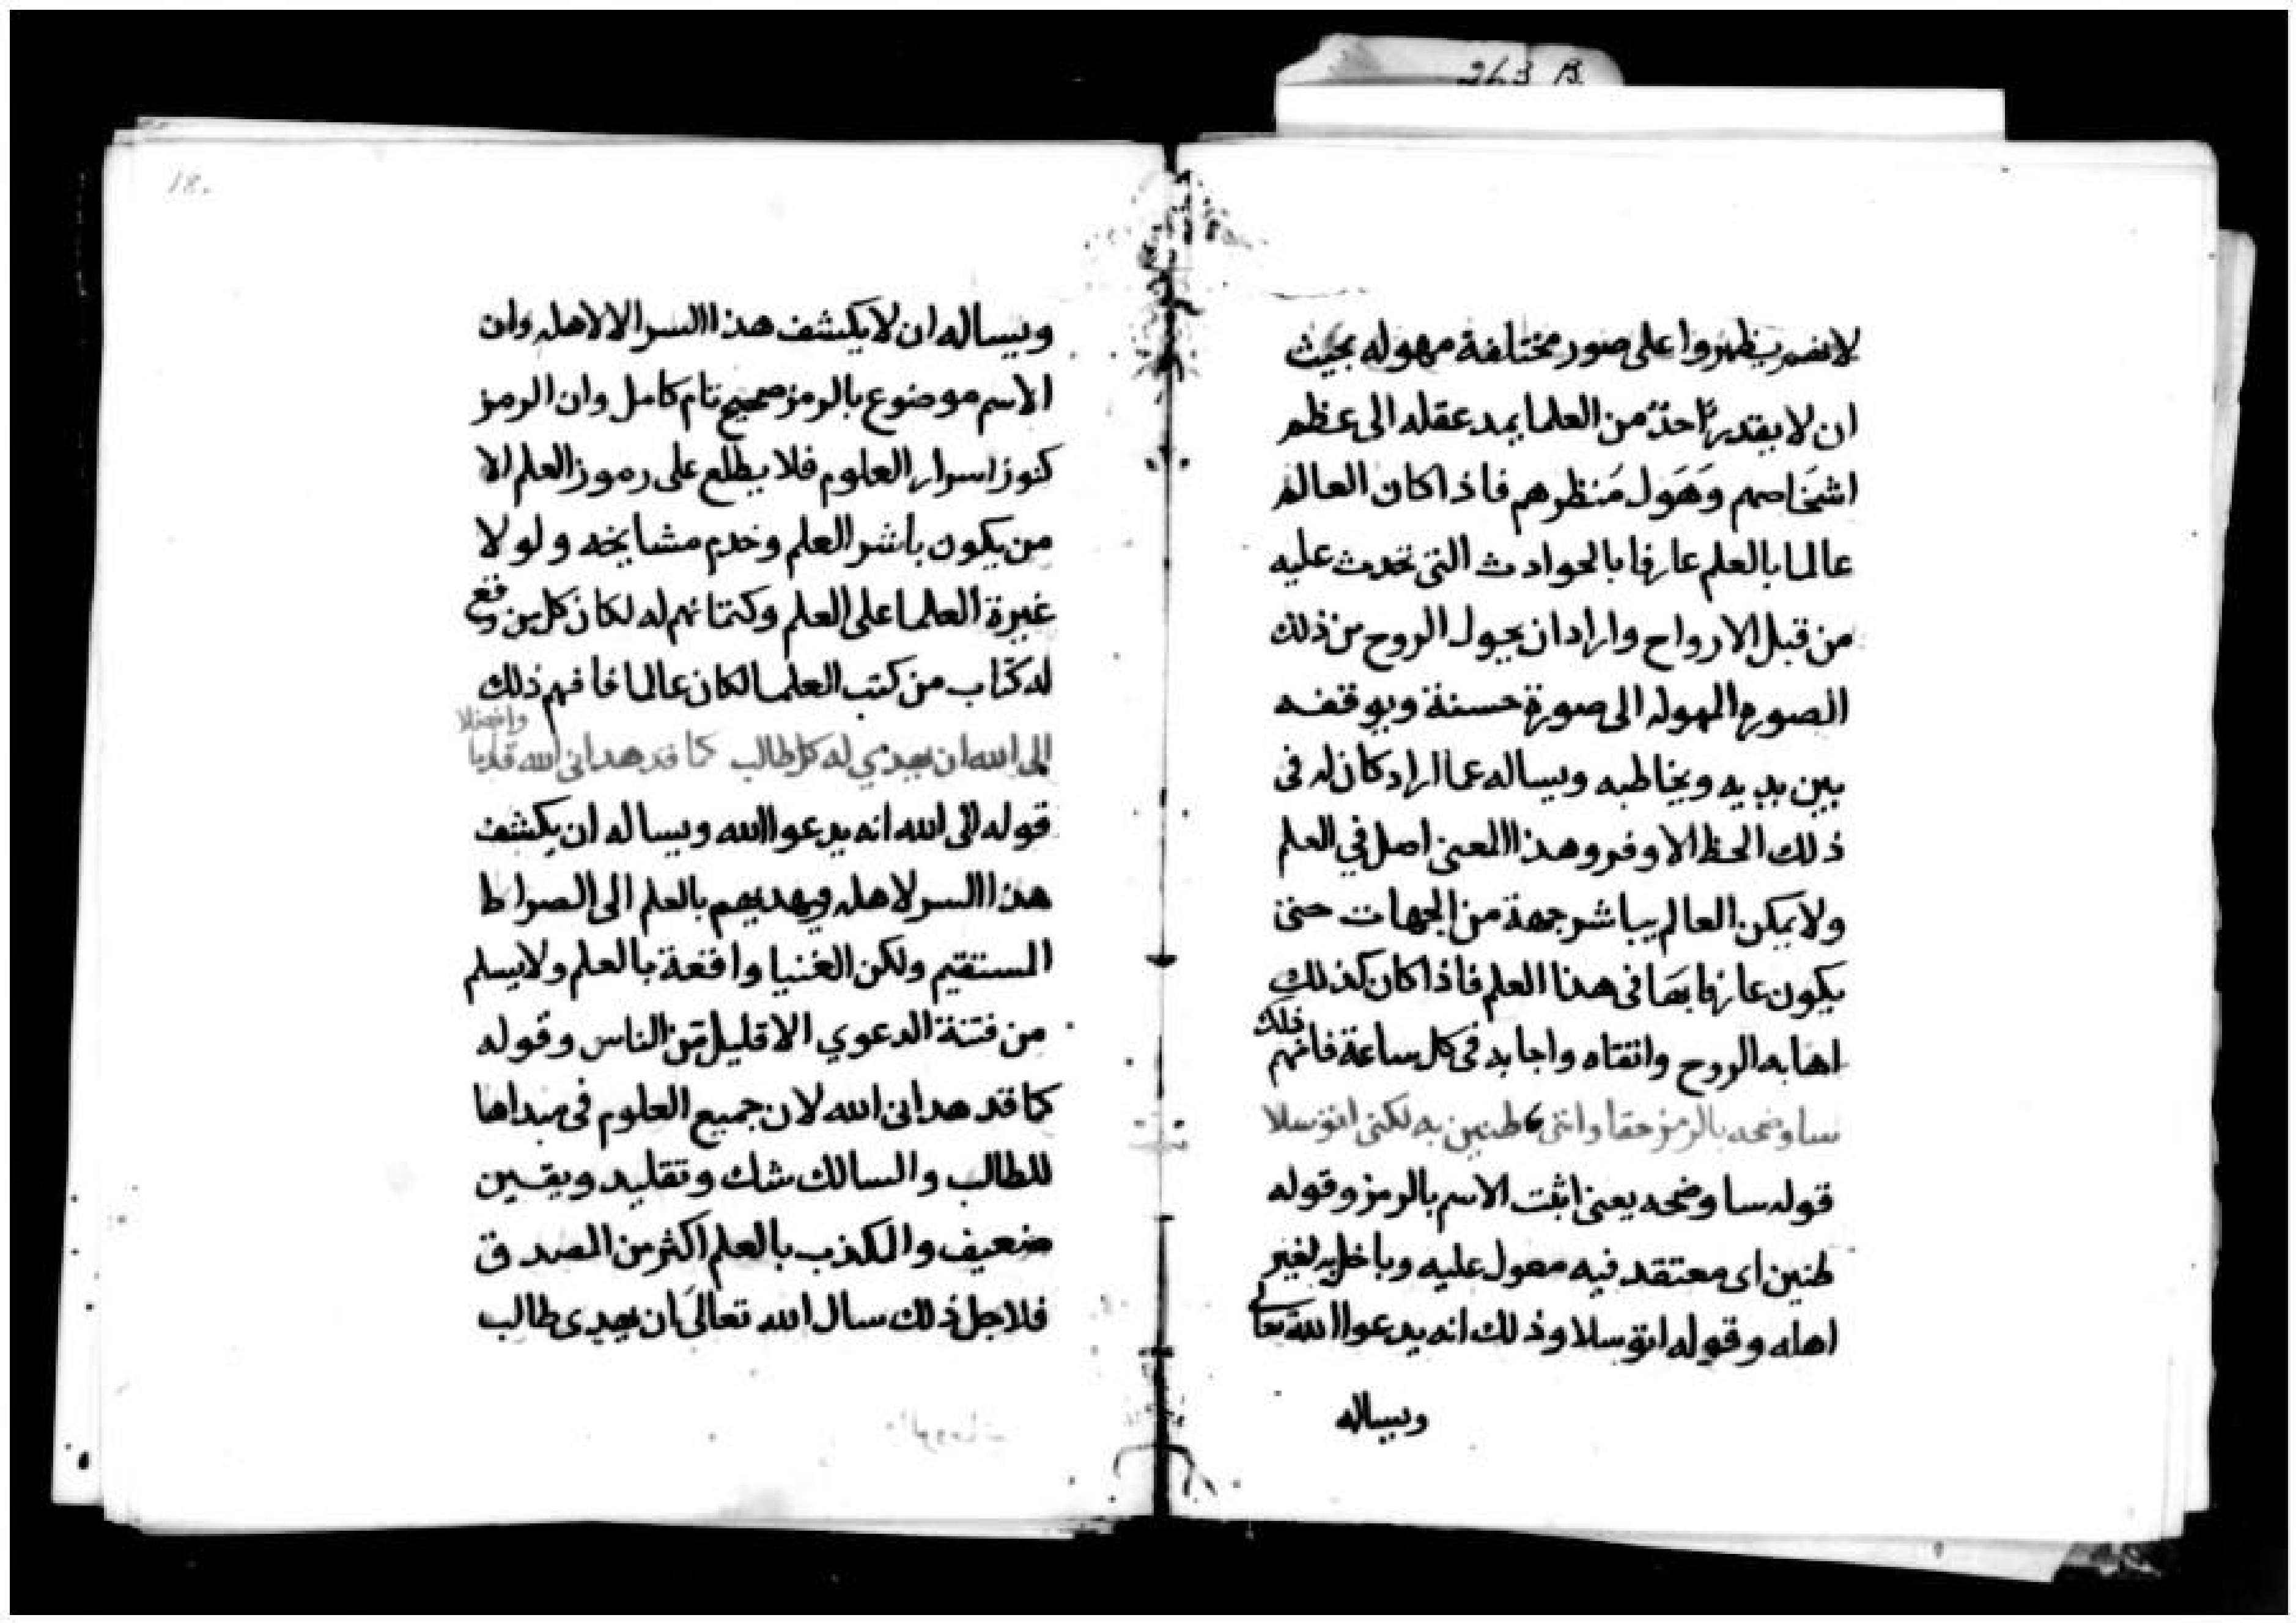 263 B
لانهم يظهروا على صور مختلفة مهوله بحيث
ان لا يقدر احدٌ من العلما يمد عقله الى عظم
اشخَاصهم وهَول مَنظرهم فاذا كان العالم
عالما بالعلم عارفا بالحوادث التى تحدث عليه
من قبل الارواح واراد ان يحول الروح من ذلك
الصوره المهوله الى صورة حسنة ويوقفه
بين يديه ويخاطبه ويساله عما اراد كان له فى
ذلك الحظ الاوفر وهذا المعنى اصل في العلم
ولا يمكن العالم يباشر جهة من الجهات حتى
يكون عارفا بهَا فى هذا العلم فاذا كان كذلك
اهابه الروح واتقاه واجابه فى كل ساعة فافهم ذلك
ساوضحه بالرمز حقا واننى ظنين به لكنى اتوسلا
قوله ساوضحه يعنى اثبت الاسم بالرمز وقوله
ظنين اى معتقد فيه معول عليه وباخل به لغير
اهله وقوله اتوسلا وذلك انه يدعوا الله تعالى
ويساله
18.
ويساله ان لا يكشف هذا السر الا لاهله وان
الاسم موضوع بالرمز صحيح تام كامل وان الرمز
كنوز اسرار العلوم فلا يطلع على رموز العلم الا
من يكون باشر العلم وخدم مشايخه ولولا
غيرة العلما على العلم وكتمانهم له لكان كل من وقع
له كتاب من كتب العلما لكان عالما فافهم ذلك
الى الله ان يهدي له كل طالب كما قد هدانى الله قلبا وافضلا
قوله الى الله انه يدعوا الله ويساله ان يكشف
هذا السر لاهله ويهديهم بالعلم الى الصراط
المستقيم ولكن الغنيا واقعة بالعلم ولا يسلم
من فتنة الدعوي الا قليل من الناس وقوله
كما قد هدانى الله لان جميع العلوم فى مبداها
للطالب والسالك شك وتقليد ويقين
ضعيف والكذب بالعلم اكثر من الصدق
فلاجل ذلك سال الله تعالىَ ان يهدى طالب